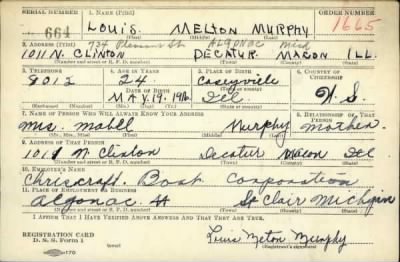 SERIAL NUMBER 1. NAME (Print) ORDER NUMBER
664 LOUIS. MELTON MURPHY 1665
(First) (Middle) (Last)
2. ADDRESS (Print) 734 Pleasant St ALGONAC Mich
1011 N. CLINTON DECATUR MACON ILL.
(Number and street or R. F. D. number) (Town) (County) (State)
3. TELEPHONE 4. AGE IN YEARS 5. PLACE OF BIRTH 6. COUNTRY OF CITIZENSHIP
8012 24 Caseyville
DATE OF BIRTH (Town or county)
MAY. 19. 1916 Ill U.S.
(Exchange) (Number) (Mo.) (Day) (Yr.) (State or country)
7. NAME OF PERSON WHO WILL ALWAYS KNOW YOUR ADDRESS 8. RELATIONSHIP OF THAT PERSON
Mrs. Mabel Murphy Mother
(Mr., Mrs., Miss) (First) (Middle) (Last)
9. ADDRESS OF THAT PERSON
1011 N. Clinton Decatur Macon Ill
(Number and street or R. F. D. number) (Town) (County) (State)
10. EMPLOYER'S NAME
Chriscraft. Boat Corporation
11. PLACE OF EMPLOYMENT OR BUSINESS
Algonac St Clair Michigan
(Number and street or R. F. D. number) (Town) (County) (State)
I AFFIRM THAT I HAVE VERIFIED ABOVE ANSWERS AND THAT THEY ARE TRUE.
REGISTRATION CARD
D. S. S. Form 1 Louis Melton Murphy
(Registrant's signature)